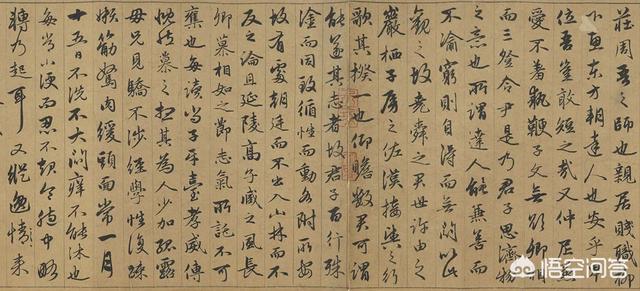 莊周吾之師也親居賤職柳
下惠東方朔達人也安乎卑
位吾豈敢短之哉又仲尼兼
愛不羞執鞭子文無欲卿相
而三登令尹是乃君子思濟物
之意也所謂達人能兼善而
不渝窮則自得而無悶以此
觀之故堯舜之君世許由之
巖栖子房之佐漢接輿之行
歌其揆一也仰瞻數君可謂
能遂其志者故君子百行殊
塗而同致循性而動各附所安
故有處朝廷而不出入山林而不
反之論且延陵高子臧之風長
卿慕相如之節志氣所託不可
奪也每讀尚子平臺孝威傳
慨然慕之想其為人少加孤露
母兄見驕不涉經學性復疎
嬾筋駑肉緩頭面常一月
十五日不洗不大悶癢不能沐也
每常小便而忍不起令胞中略
轉乃起耳又縱逸情來
悟空问答